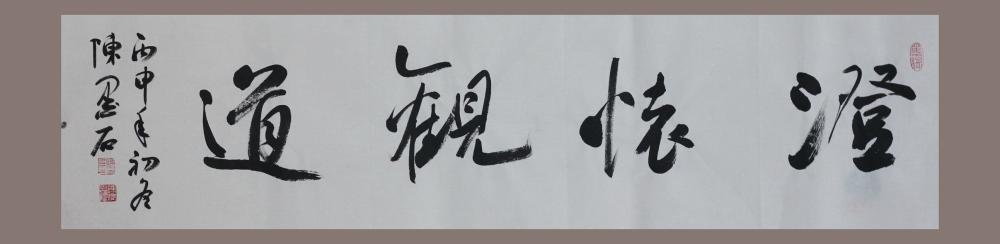 澄懷觀道
丙申年初冬
陳墨石